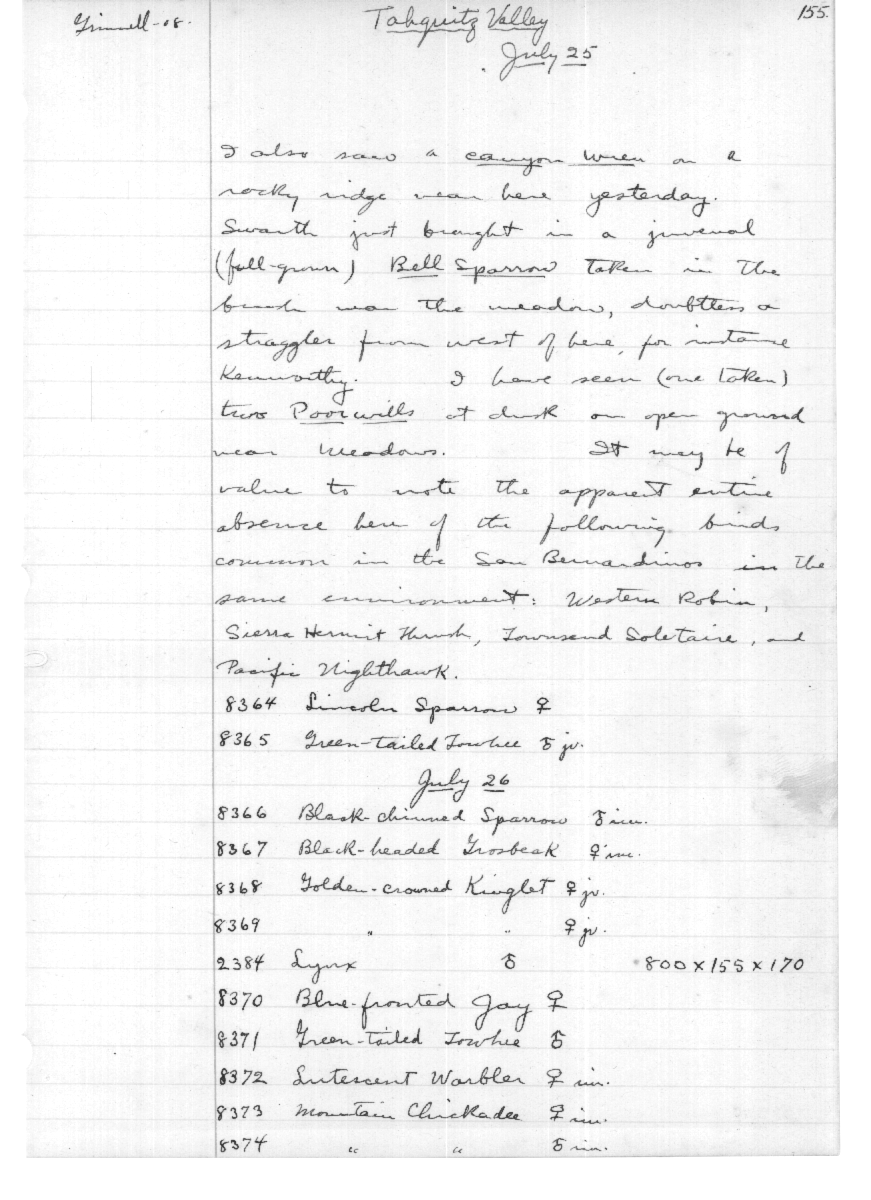 Grinnell-08.
Tahquitz Valley
155.
July 25
I also saw a canyon wren on a
rocky ridge near here yesterday.
Swarth just brought in a juvenal
(full-grown) Bell Sparrow taken in the
brush near the meadow, doubtless a
straggler from west of here, for instance
Kenworthy. I have seen (one taken)
two Poorwills at dusk on open ground
near meadows. It may be of
value to note the apparent entire
absence here of the following birds
common in the San Bernardinos in the
same environment: Western Robin,
Sierra Hermit Thrush, Townsend Soletaire, and
Pacific Nighthawk.
8364 Lincoln Sparrow ♀
8365 Green-tailed Towhee ♂ jv.
July 26
8366 Black-chinned Sparrow ♂ im.
8367 Black-headed Grosbeak ♀ im.
8368 Golden-crowned Kinglet ♀ jv.
8369 " " ♀ jv.
2384 Lynx ♂ 800 x 155 x 170
8370 Blue-fronted Jay ♀
8371 Green-tailed Towhee ♂
8372 Lutescent Warbler ♀ im.
8373 Mountain Chickadee ♀ im.
8374 " " ♂ im.